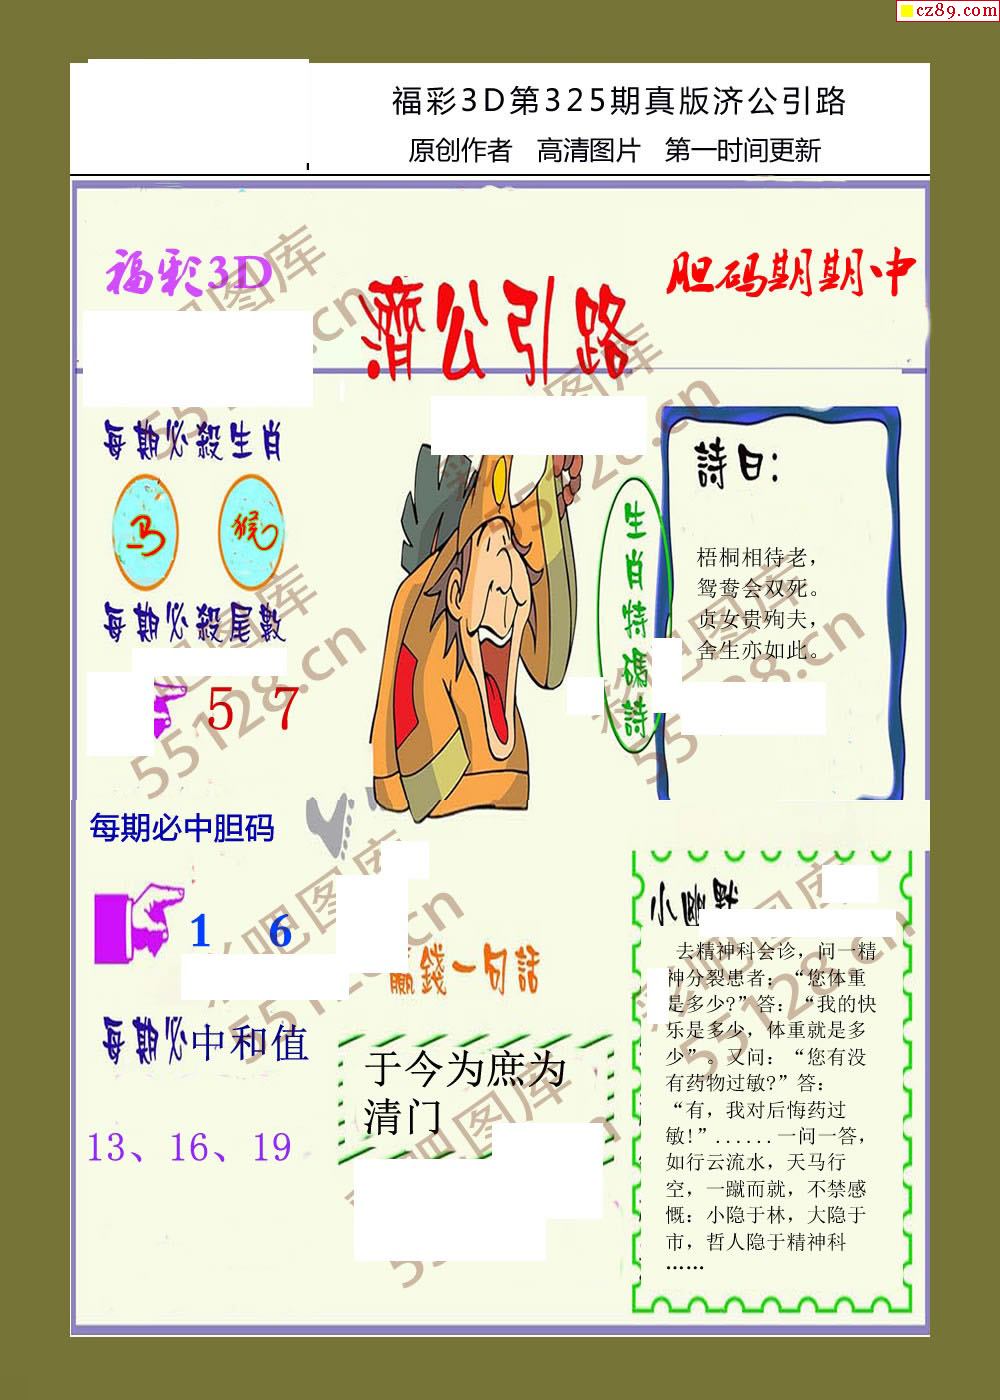 cz89.com
福彩3D第325期真版济公引路
原创作者 高清图片 第一时间更新
福彩3D
濟公引路
胆码期期中
每期必殺生肖
马 猴
每期必殺尾數
5 7
每期必中胆码
1 6
每期必中和值
13、16、19
生肖特碼詩
詩曰：
梧桐相待老，
鸳鸯会双死。
贞女贵殉夫，
舍生亦如此。
贏錢一句話
于今为庶为
清门
小幽默
去精神科会诊，问一精
神分裂患者；“您体重
是多少?”答：“我的快
乐是多少，体重就是多
少”。又问：“您有没
有药物过敏?”答：
“有，我对后悔药过
敏!”......一问一答，
如行云流水，天马行
空，一蹴而就，不禁感
慨：小隐于林，大隐于
市，哲人隐于精神科
……
彩吧图库
55128.cn